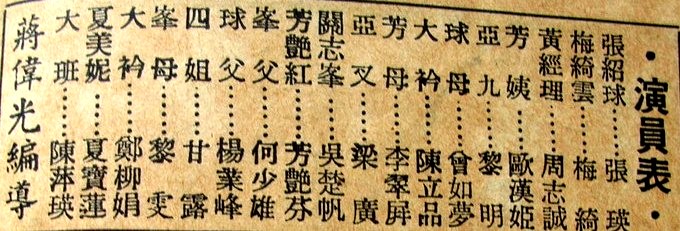 ·演員表·
張紹球……張 瑛
梅綺雲……梅 綺
黃經理……周志誠
芳 姨……歐漢姬
亞 九……黎 明
球 母……曾如夢
大 衿……陳立品
芳 母……李翠屏
亞 叉……梁 廣
關志峯……吳楚帆
芳艷紅……芳艷芬
峯 父……何少雄
球 父……楊葉峰
四 姐……甘 露
峯 母……黎 雯
大 衿……鄭柳娟
夏美妮……夏寶蓮
大 班……陳萍瑛
蔣偉光編導